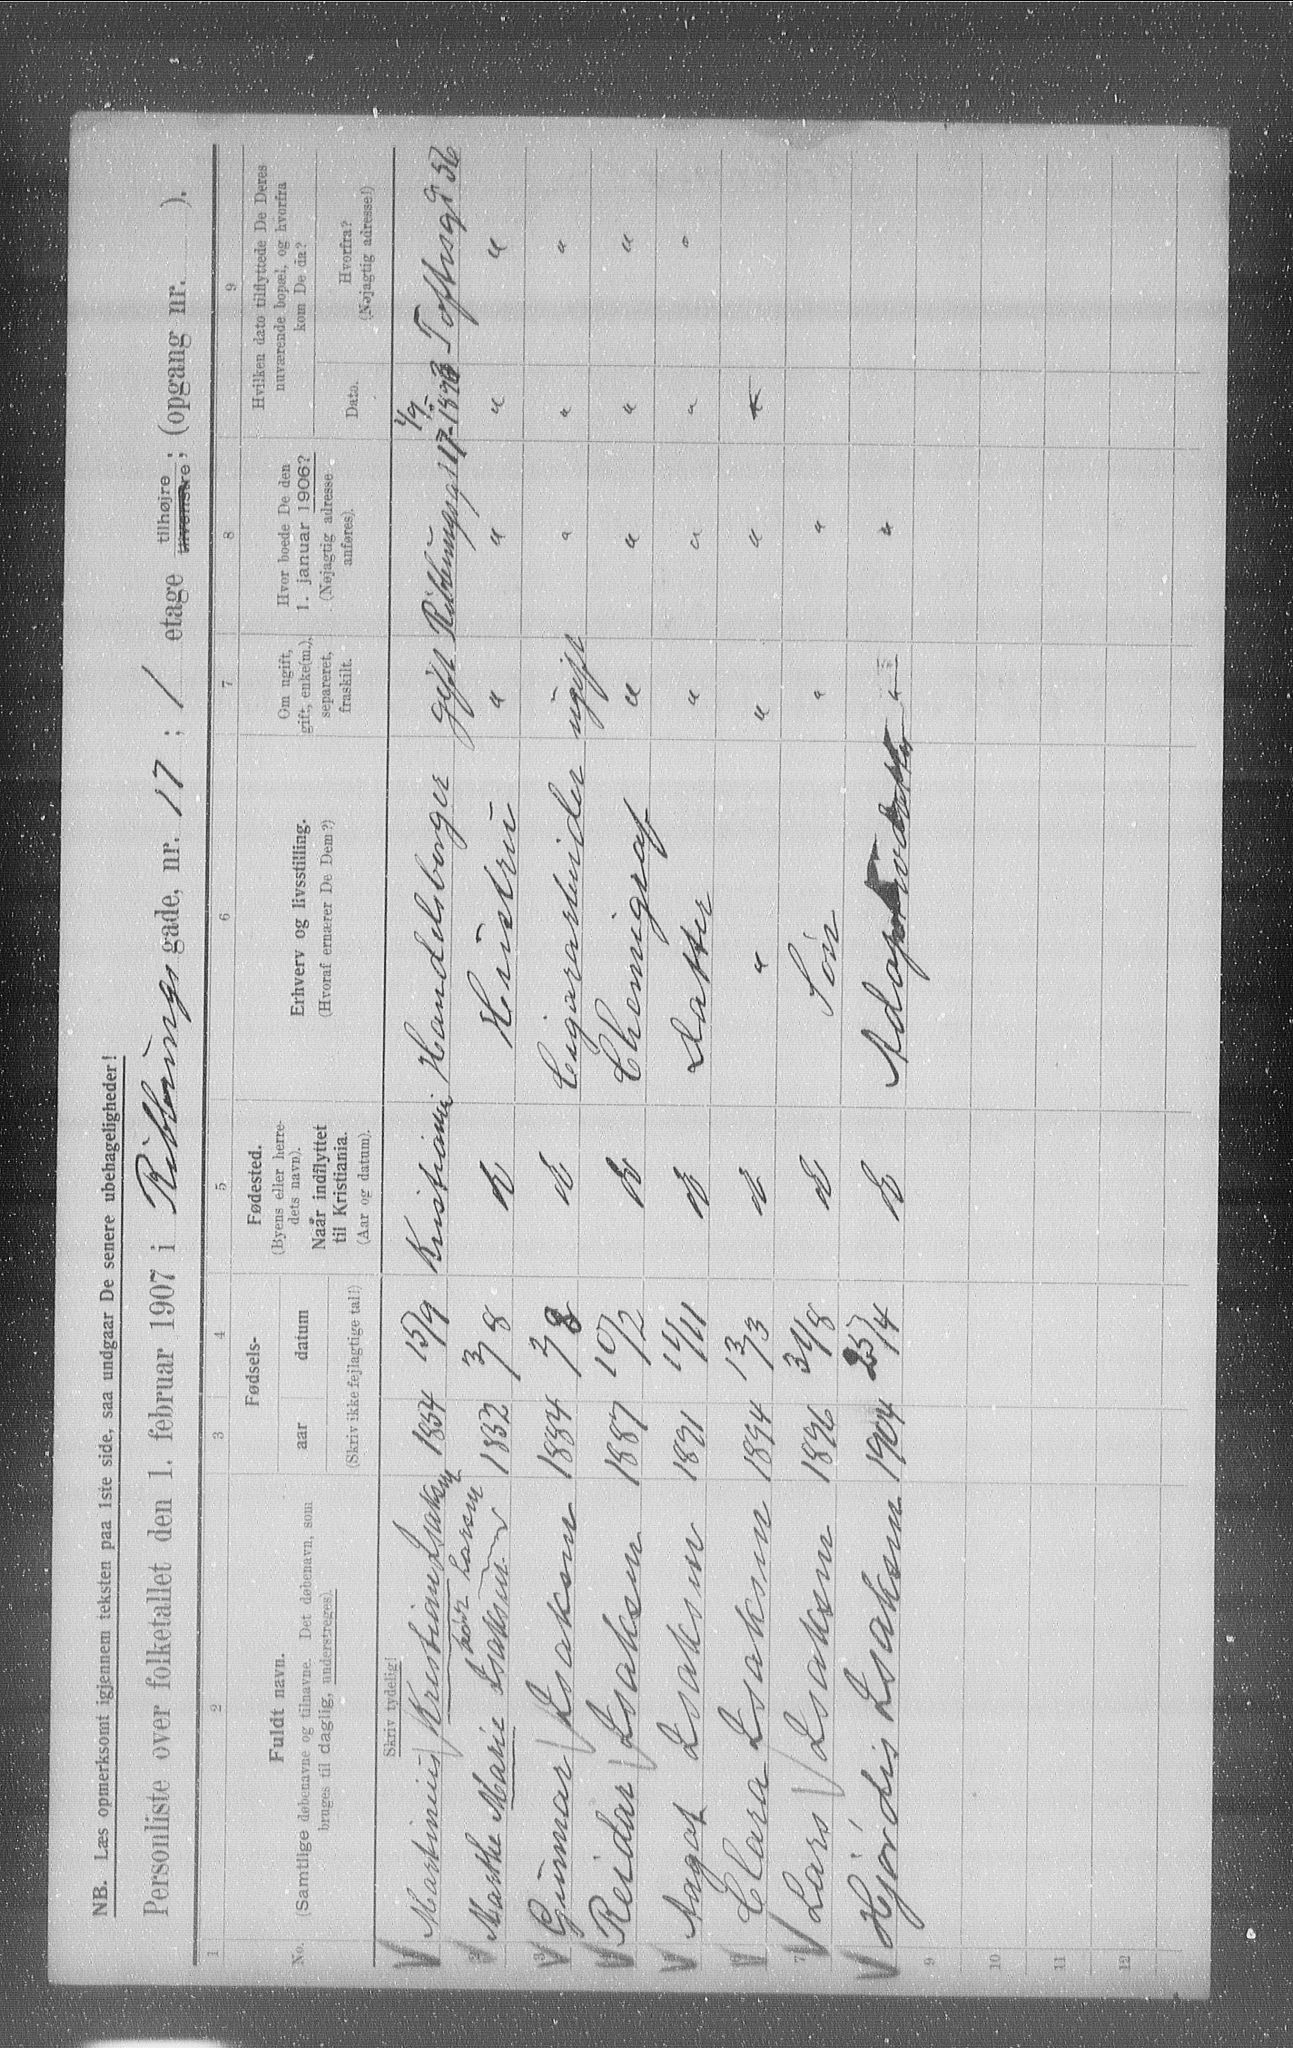 NB. Læs opmerksomt igjennem teksten paa 1ste side, saa undgaar De senere ubehageligheder!
Personliste over folketallet den 1. februar 1907 i Ribbungs gade, nr. 17; 1 etage tilhøjre tilvenstre; (opgang nr. ).
1 2 3 4 5 6 7 8 9
No.
Fuldt navn.
(Samtlige døbenavne og tilnavne. Det døbenavn, som
bruges til daglig, understreges).
Fødsels-
aar datum
(Skriv ikke fejlagtige tal!)
Fødested.
(Byens eller herre-
dets navn).
Naar indflyttet
til Kristiania.
(Aar og datum).
Erhverv og livsstilling.
(Hvoraf ernærer De Dem?)
Om ugift,
gift, enke(m.),
separeret,
fraskilt.
Hvor boede De den
1. januar 1906?
(Nøjagtig adresse
anføres).
Hvilken dato tilflyttede De Deres
nuværende bopæl, og hvorfra
kom De da?
Dato.
Hvorfra?
(Nøjagtig adresse!)
Skriv tydelig!
Martinius Kristian Isaksen 1854 15/9 Kristiania Handelsborger gift Ribbungsg 17 1/9 - 1896 Toftesgd 56
født Larsen
2 Marthe Marie Isaksen 1852 3/8 do Hustru " " " "
3 Gunnar Isaksen 1884 7/8 do Cigararbeider ugift " " "
Reidar Isaksen 1887 10/2 do Chemigraf " " " "
Aagot Isaksen 1891 14/11 do Datter " " " "
Clara Isaksen 1894 13/3 do " " "
7 Lars Isaksen 1896 31/8 do Søn " "
Hjördis Isaksen 1904 25/4 do Adoptivdatter " "
9
10
11
12